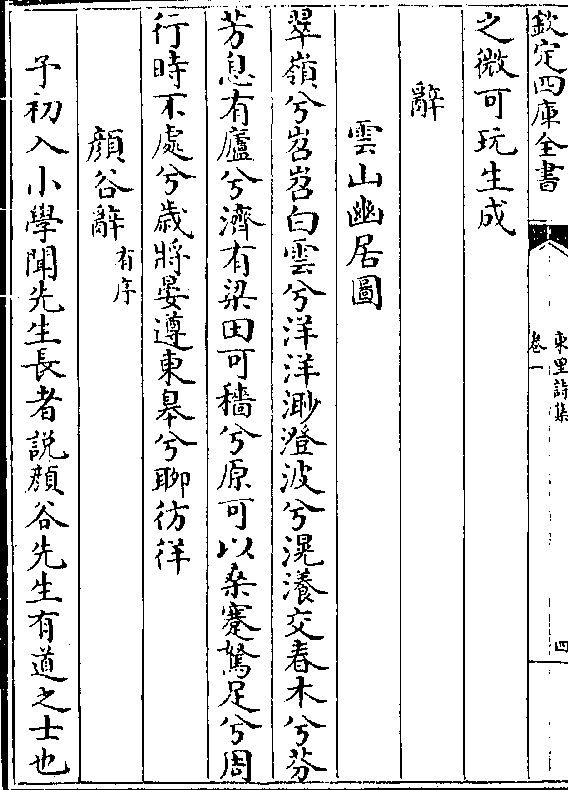 欽定四庫全書
東里詩集
卷一
四
之微可玩生成
辭
雲山幽居圖
翠嶺兮岧岧白雲兮洋洋渺澄波兮滉瀁交春木兮芬
芳息有廬兮濟有梁田可穡兮原可以桑蹇駑足兮周
行時不處兮歳將晏遵東臯兮聊彷徉
顔谷辭有序
予初入小學聞先生長者説顔谷先生有道之士也